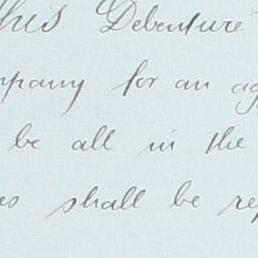 This Debenture
mpany for an ag
be all in the
es shall be rep